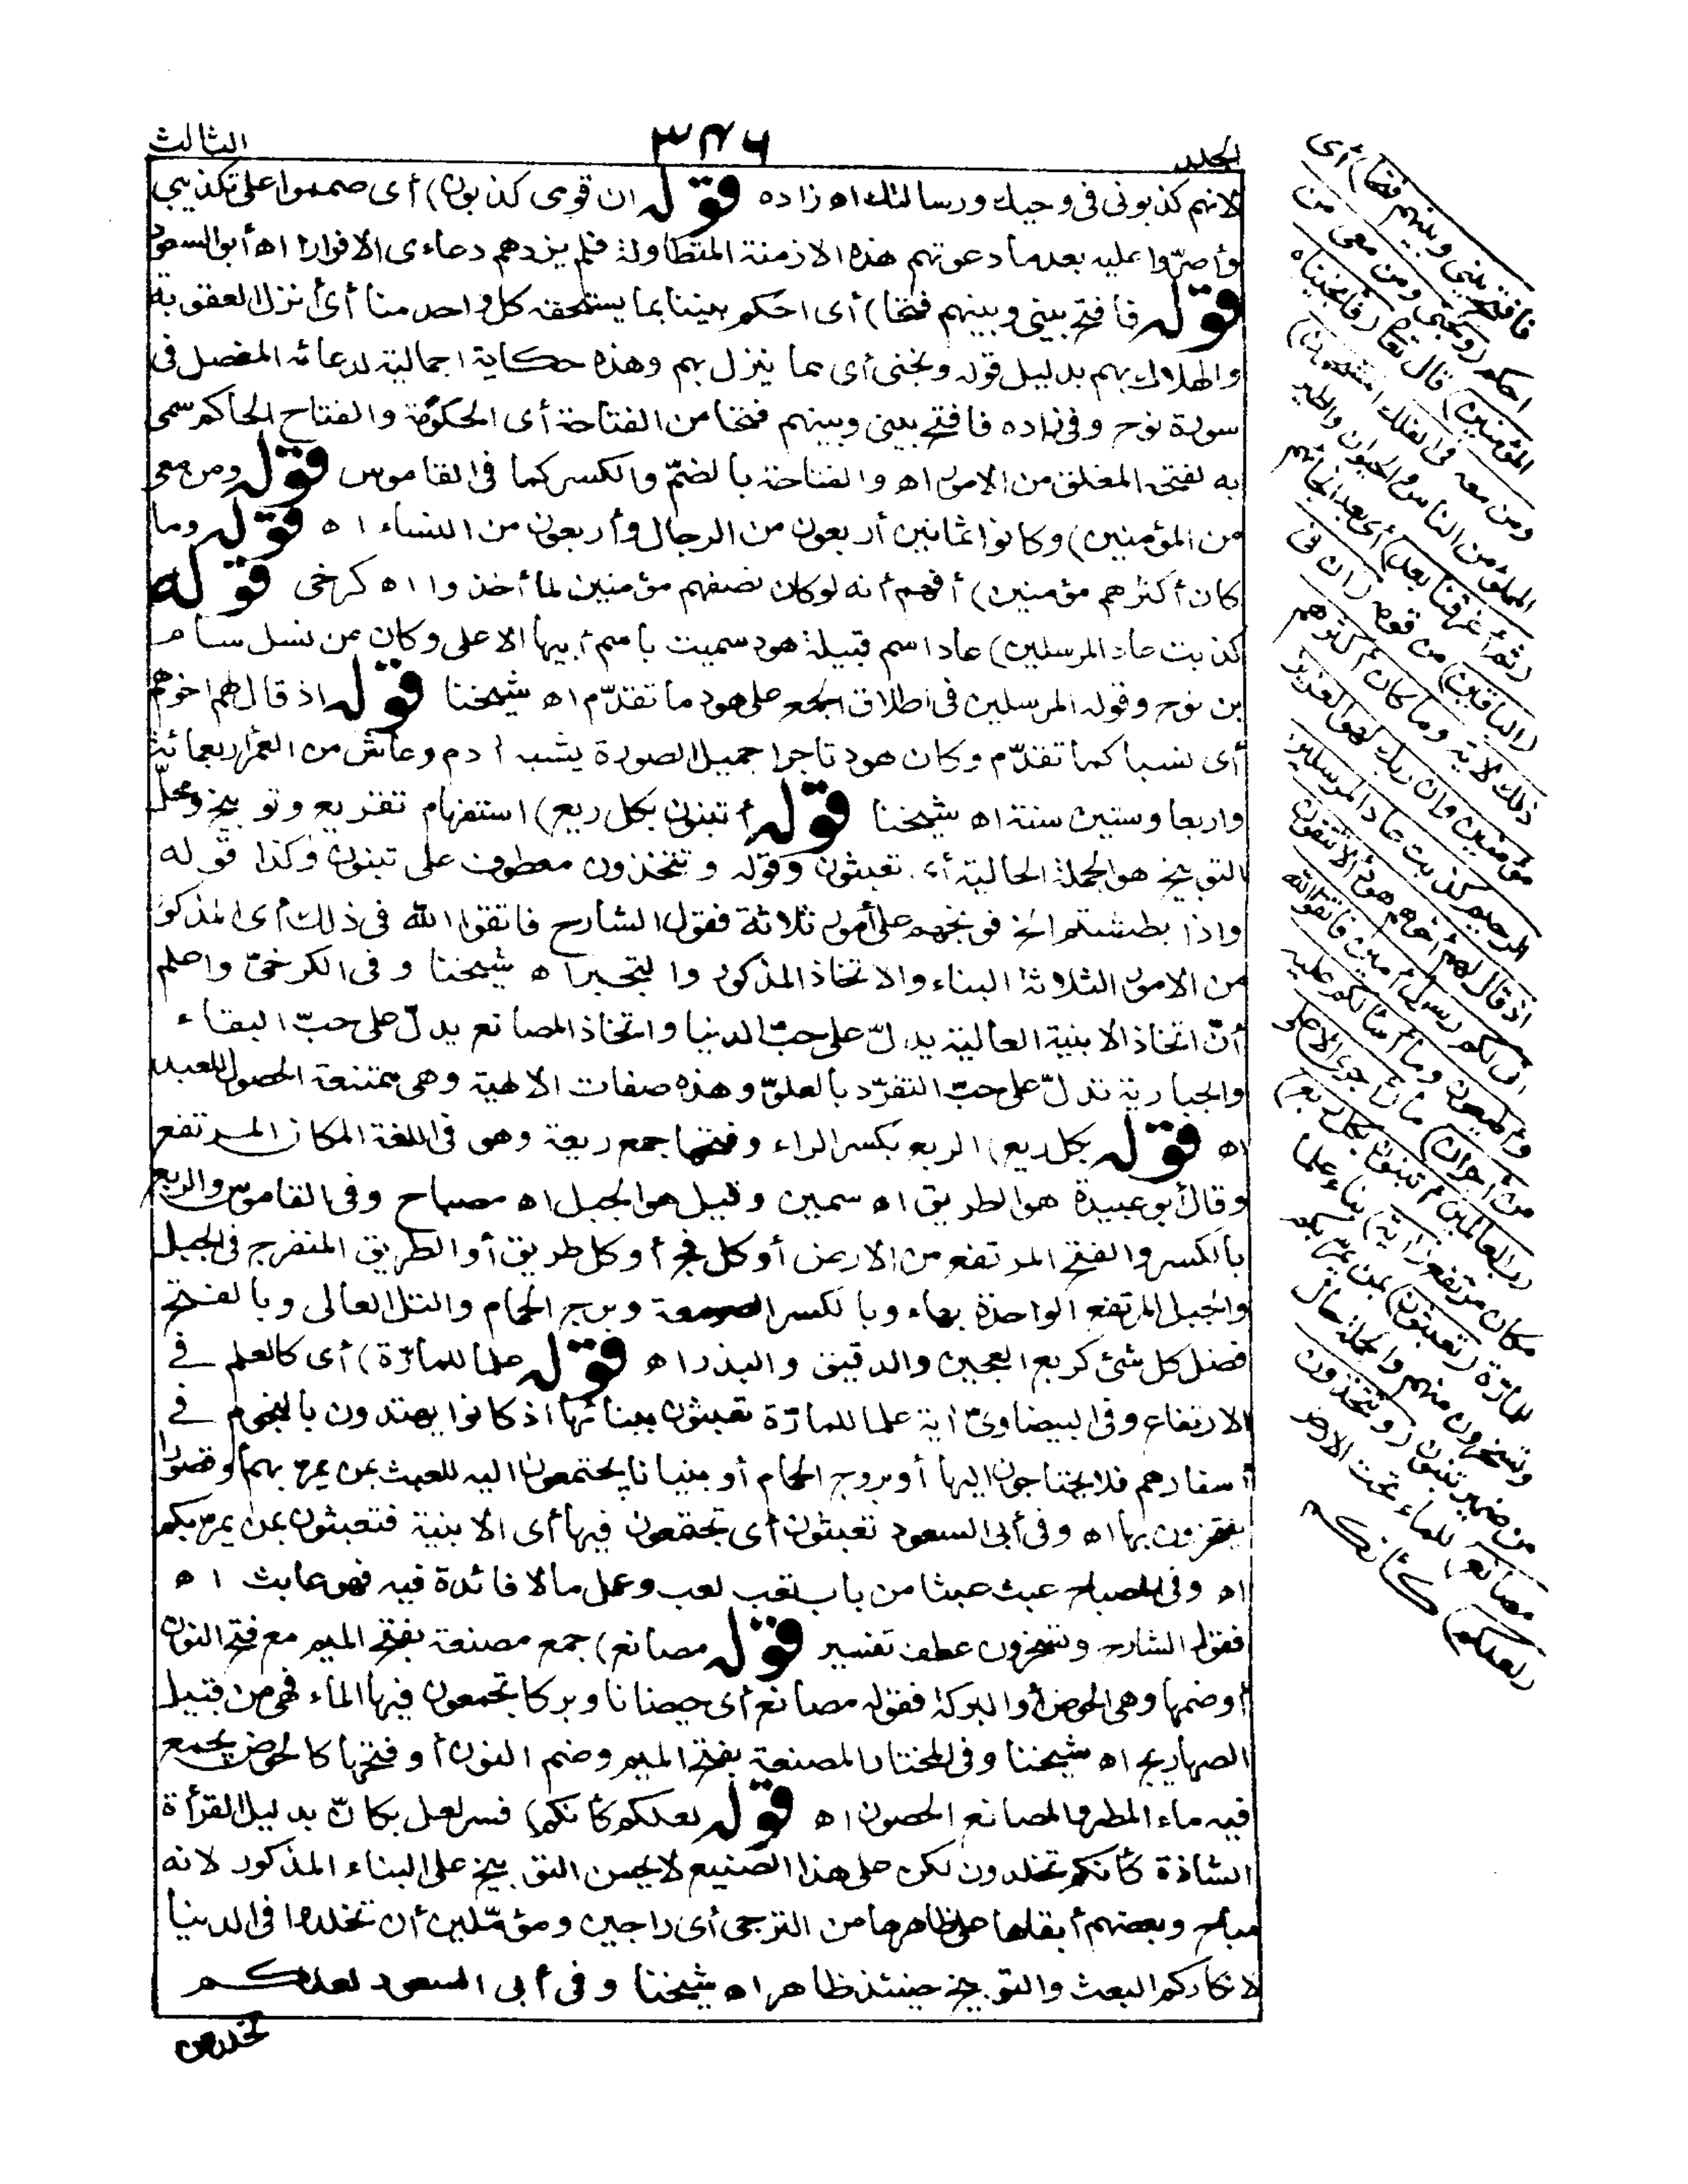 المجلد
٣٤٦
الثالث
لانهم كذبونى فى وحيك ورسالتك اه زاده قوله ان قومى كذبون) أى صمموا على تكذيبى
وأصرّوا عليه بعدما دعوتهم هذه الازمنة المتطاولة فلم يزدهم دعاءى الا فرارا اه أبو السعود
قوله فافتح بينى وبينهم فتحا) أى احكم بيننا بما يستحقه كل واحد منا أى أنزل العقوبة
والهلاك بهم بدليل قوله ونجنى أى مما ينزل بهم وهذه حكاية اجمالية لدعائه المفصل فى
سورة نوح وفى زاده فافتح بينى وبينهم فتحا من الفتاحة أى الحكومة والفتاح الحاكم سمى
به لفتحه المغلق من الامور اه والفتاحة بالضمّ والكسر كما فى القاموس قوله ومن معى
من المؤمنين) وكانوا ثمانين أربعون من الرجال وأربعون من النساء اه قوله وما
كان أكثرهم مؤمنين) أفهم أنه لو كان نصفهم مؤمنين لما أخذوا اه كرخى قوله
كذبت عاد المرسلين) عاد اسم قبيلة هود سميت باسم أبيها الاعلى وكان من نسل سام
بن نوح وقوله المرسلين فى اطلاق الجمع على هود ما تقدّم اه شيخنا قوله اذ قال لهم اخوهم
أى نسبا كما تقدّم وكان هود تاجرا جميل الصورة يشبه ادم وعاش من العمر اربعمائة
واربعا وستين سنة اه شيخنا قوله أتبنون بكل ريع) استفهام تقريع وتوبيخ ومحلّ
التوبيخ هو الجملة الحالية أى تعبثون وقوله وتتخذون معطوف على تبنون وكذا قوله
واذا بطشتم الخ فوبخهم على أمور ثلاثة فقول الشارح فاتقوا الله فى ذلك أى المذكور
من الامور الثلاثة البناء والاتخاذ المذكور والتجبر اه شيخنا وفى الكرخىّ واعلم
أنّ اتخاذ الابنية العالية يدلّ على حبّ الدنيا واتخاذ المصانع يدلّ على حبّ البقاء
والجبارية تدلّ على حبّ التفرّد بالعلوّ وهذه صفات الالهية وهى ممتنعة الحصول للعبد
اه قوله بكل ريع) الريع بكسر الراء وفتحها جمع ريعة وهو فى اللغة المكان المرتفع
وقال أبو عبيدة هو الطريق اه سمين وقيل هو الجبل اه مصباح وفى القاموس والريع
بالكسر والفتح المرتفع من الارض أو كل فج أو كل طريق أو الطريق المنفرج فى الجبل
والجبل المرتفع الواحدة بهاء وبالكسر الصومعة وبرج الحمام والتل العالى وبالفتح
فضل كل شئ كريع العجين والدقيق والبذر اه قوله علما للمارّة) أى كالعلم فى
الارتفاع وفى البيضاوىّ اية علما للمارّة تعبثون ببنائها اذ كانوا يهتدون بالنجوم فى
أسفارهم فلا يحتاجون اليها أو بروج الحمام أو بنيانا يجتمعون اليه للعبث بمن يمرّ بهم أو قصورا
يفتخرون بها اه وفى أبى السعود تعبثون أى تجتمعون فيها أى الابنية فتعبثون بمن يمرّ بكم
اه وفى المصباح عبث عبثا من باب تعب لعب وعمل ما لا فائدة فيه فهو عابث اه
فقول الشارح وتسخرون عطف تفسير قوله مصانع) جمع مصنعة بفتح الميم مع فتح النون
أو ضمها وهى الحوض أو البركة فقوله مصانع أى حيضانا وبركا تجمعون فيها الماء فهى من قبيل
الصهاريج اه شيخنا وفى المختار المصنعة بفتح الميم وضم النون أو فتحها كالحوض يجمع
فيه ماء المطر والمصانع الحصون اه قوله لعلكم كأنكم) فسر لعل بكأنّ بدليل القرأة
الشاذة كأنكم تخلدون لكن على هذا الصنيع لا يحسن التوبيخ على البناء المذكور لانه
مباح وبعضهم أبقاها على ظاهرها من الترجى أى راجين ومؤمّلين أن تخلدوا فى الدنيا
لانكاركم البعث والتوبيخ حينئذ ظاهر اه شيخنا وفى أبى السعود لعلكم
تخلدون
فافتح بينى وبينهم فتحا) أى
احكم (ونجنى ومن معى من
المؤمنين) قال تعالى (فانجيناه
ومن معه فى الفلك المشحون)
المملوء من الناس والحيوان والطير
(ثم أغرقنا بعد) أى بعد انجائهم
(الباقين) من قومه (ان فى
ذلك لاية وما كان أكثرهم
مؤمنين وان ربك لهو العزيز
الرحيم كذبت عاد المرسلين
اذ قال لهم أخوهم هود الا تتقون
انى لكم رسول أمين فاتقوا الله
وأطيعون وما أسألكم عليه
من أجر ان) ما (أجرى الا على
رب العالمين أتبنون بكل ريع)
مكان مرتفع (اية) بناء علما
للمارّة (تعبثون) بمن يمرّ بكم
وتسخرون منهم والجملة حال
من ضمير تبنون (وتتخذون
مصانع) للماء تحت الارض
(لعلكم) كأنكم